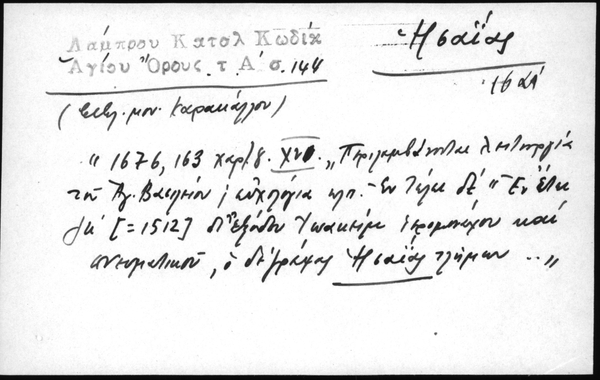 Λάμπρου Κατολ Κωδίκ
Ἁγίου Ὄρους τ Α' σ. 144
Ἡσαΐας
16 αἰ
(Βιβλ. μον. Καρακάλλου)
" 1676, 163 χαρτ. 8. XVI. „ Περιλαμβάνεται λειτουργία
τοῦ Ἁγ. Βασιλείου, εὐχολόγια κλπ. - Ἐν τέλει δὲ " Ἐν ἔτει
ζκ' [=1512] δι' ἐξόδου Ἰωακεὶμ ἱερομονάχου καὶ
πνευματικοῦ, ὁ δὲ γράψας Ἡσαΐας τλήμων .. „